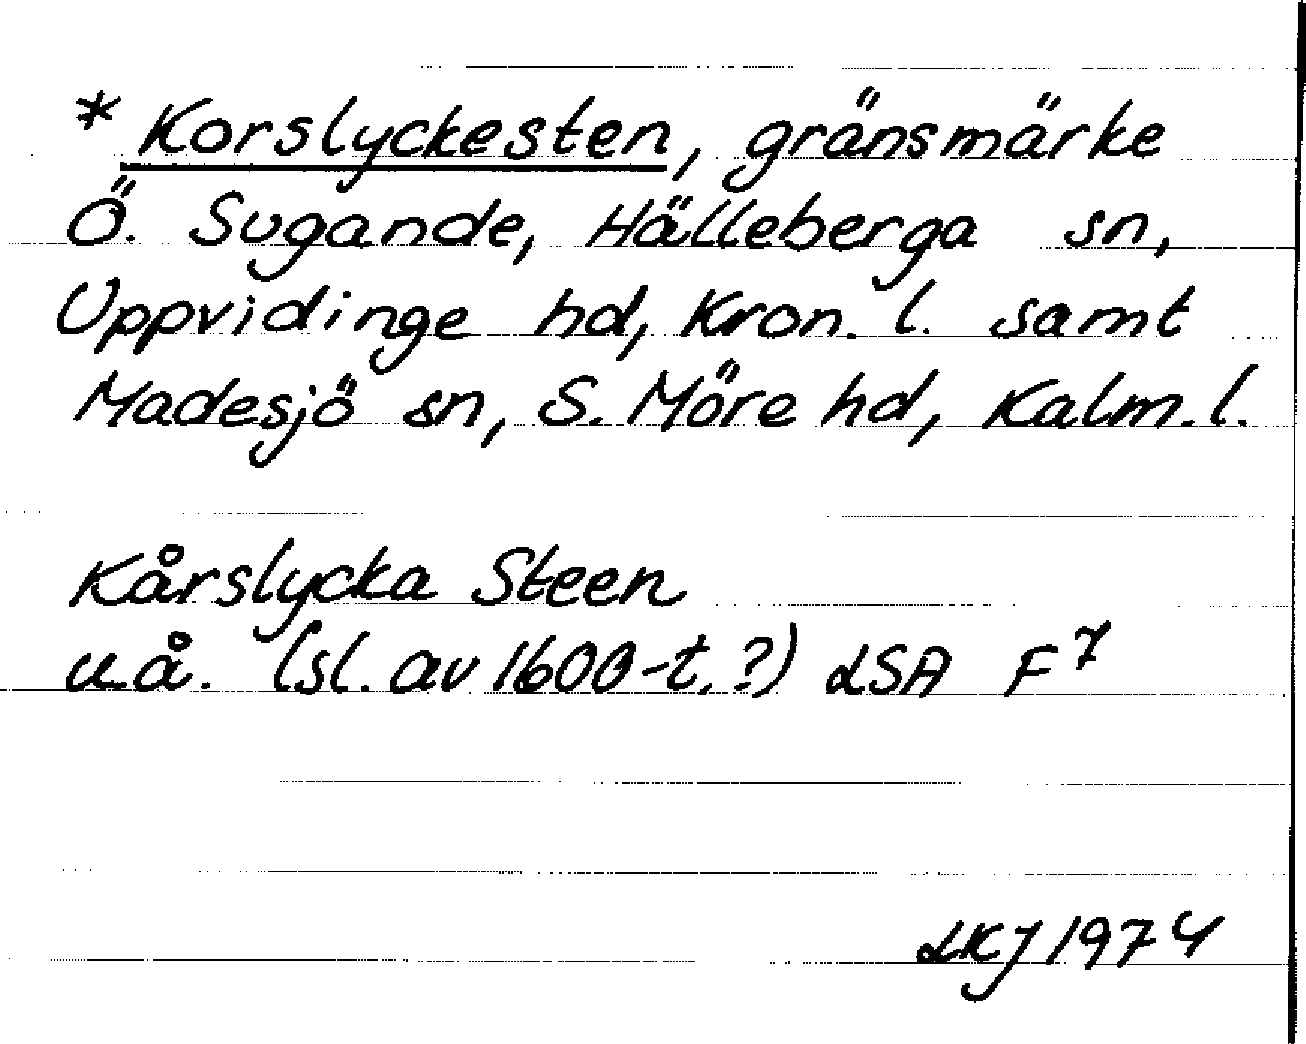 * Korslyckesten, gränsmärke
Ö. Sugande, Hälleberga sn,
Uppvidinge hd, Kron. l. samt
Madesjö sn, S. Möre hd, Kalm. l.
Kårslycka Steen
u.å. (sl. av 1600-t.?) LSA F⁷
LKJ 1974